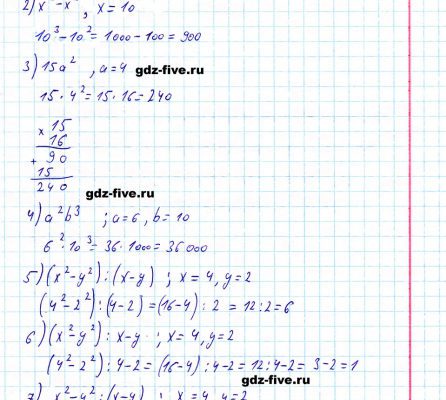 2) x³ - x², x = 10
10³ - 10² = 1000 - 100 = 900
3) 15a², a = 4
gdz-five.ru
15 · 4² = 15 · 16 = 240
× 15
16
+ 90
15
240
gdz-five.ru
4) a²b³ ; a = 6, b = 10
6² · 10³ = 36 · 1000 = 36 000
5) (x² - y²) : (x - y) ; x = 4, y = 2
(4² - 2²) : (4 - 2) = (16 - 4) : 2 = 12 : 2 = 6
6) (x² - y²) : x - y ; x = 4, y = 2
(4² - 2²) : 4 - 2 = (16 - 4) : 4 - 2 = 12 : 4 - 2 = 3 - 2 = 1
gdz-five.ru
7) x² - y² : (x - y) ; x = 4, y = 2